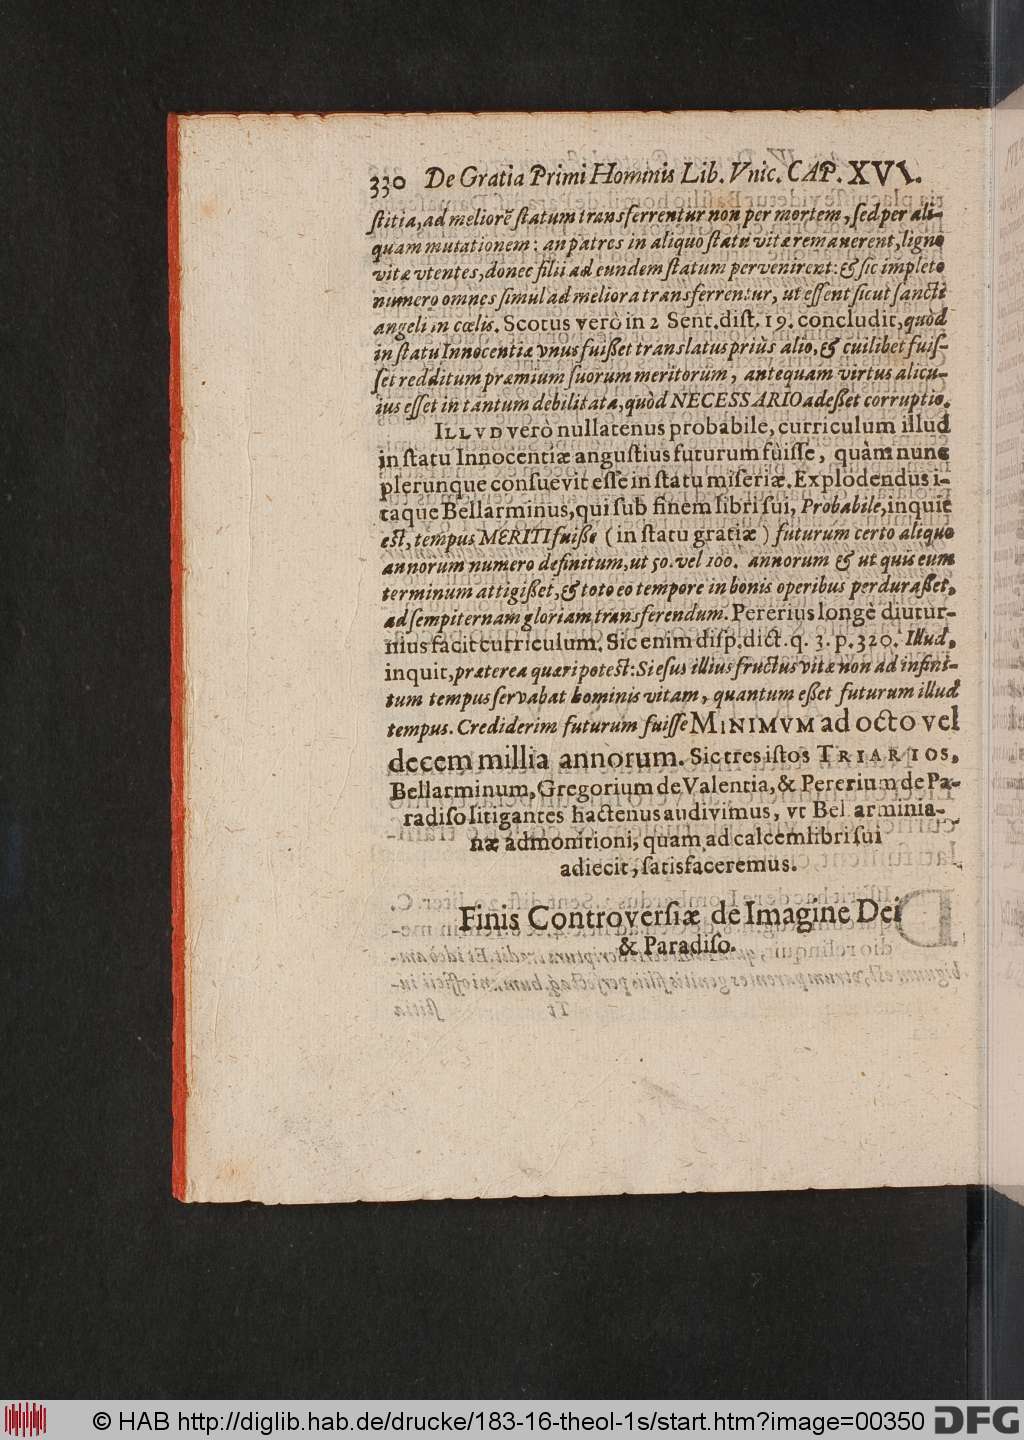 330 De Gratia Primi Hominis Lib. Vnic. CAP. XVI.
ſtitia, ad meliorẽ ſtatum transferrentur non per mortem, ſed per ali-
quam mutationem: an patres in aliquo ſtatu vitæ remanerent, ligno
vitæ vtentes, donec filii ad eundem ſtatum pervenirent: & ſic impleto
numero omnes ſimul ad meliora transferrentur, ut eſſent ſicut ſancti
angeli in cœlis. Scotus verò in 2 Sent. diſt. 19. concludit, quòd
in ſtatu Innocentiæ vnus fuißet translatus priùs alio, & cuilibet fuiſ-
ſet redditum præmium ſuorum meritorum, antequam virtus alicu-
ius eſſet in tantum debilitata, quòd NECESSARIO adeßet corruptio.
ILLVD verò nullatenus probabile, curriculum illud
in ſtatu Innocentiæ anguſtius futurum fuiſſe, quàm nunc
plerunque conſuevit eſſe in ſtatu miſeriæ. Explodendus i-
taque Bellarminus, qui ſub finem libri ſui, Probabile, inquit
eſt, tempus MERITI fuiße (in ſtatu gratiæ) futurum certo aliquo
annorum numero definitum, ut 50. vel 100. annorum & ut quis eum
terminum attigißet, & toto eo tempore in bonis operibus perduraßet,
ad ſempiternam gloriam transferendum. Pererius longè diutur-
nius facit curriculum. Sic enim diſp. dict. q. 3. p. 320. Illud,
inquit, præterea quæri poteſt: Si eſus illius fructus vitæ non ad infini-
tum tempus ſervabat hominis vitam, quantum eßet futurum illud
tempus. Crediderim futurum fuiſſe MINIMVM ad octo vel
decem millia annorum. Sic tres iſtos TRIARIOS,
Bellarminum, Gregorium de Valentia, & Pererium de Pa-
radiſo litigantes hactenus audivimus, vt Bellarminia-
næ admonitioni, quam ad calcem libri ſui
adiecit, ſatisfaceremus.
Finis Controverſiæ de Imagine Dei
& Paradiſo.
© HAB http://diglib.hab.de/drucke/183-16-theol-1s/start.htm?image=00350 DFG